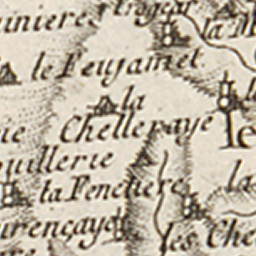 inieres
la
le Feujamet
la
Chelleraye
le
uillerie
la Fenetiere
la
urençaye
les Che